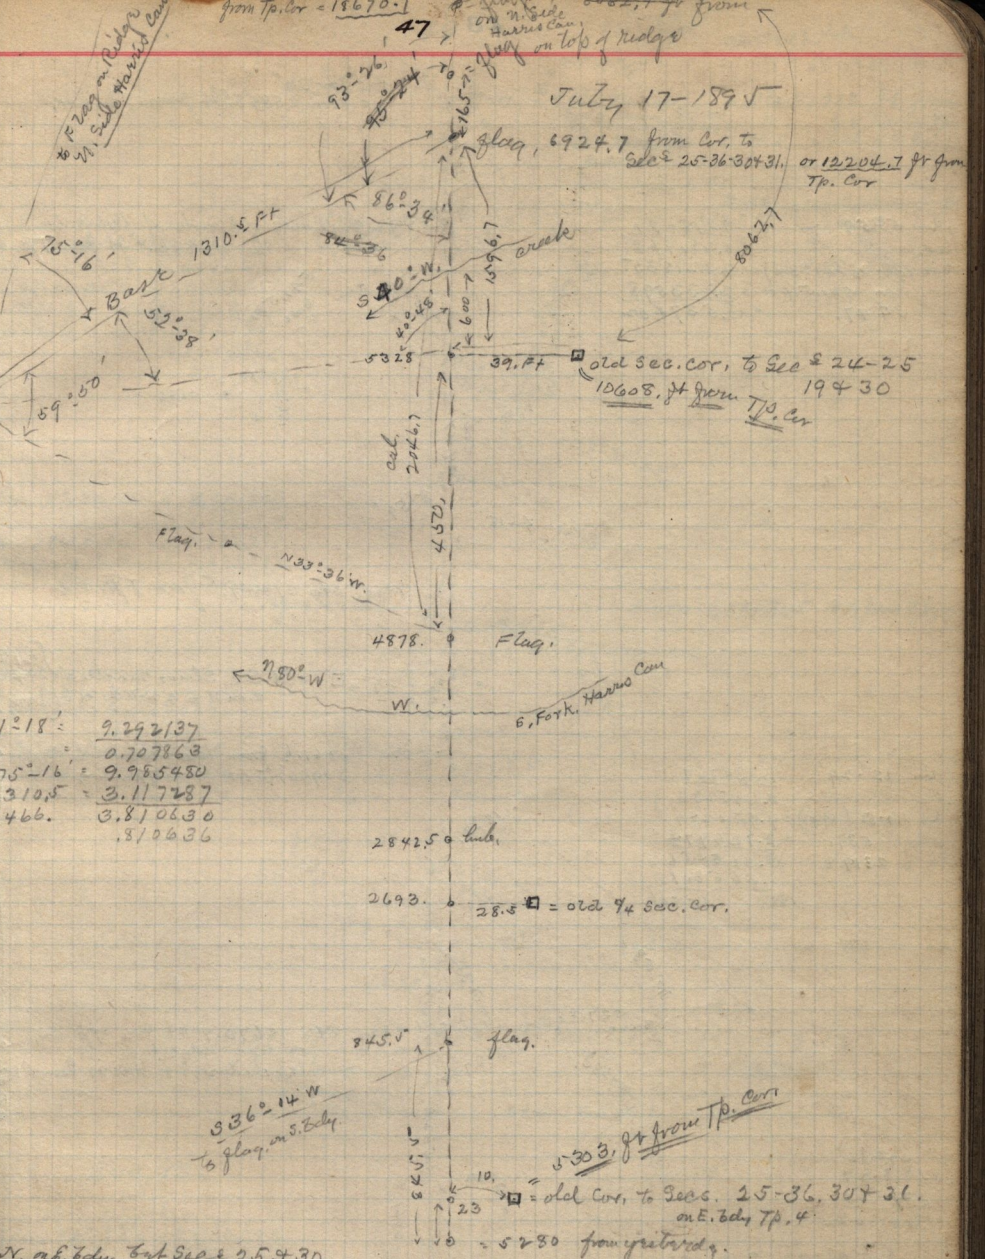 from Tp. Cor = 18670.1
47
on N. Side
Harris Can,
flag on top of ridge
to Flag on Ridge
N. Side Harris Can
93°-26'
July 17-1895
flag, 6924.7 from Cor. to
Secs 25-36-30&31. or 12204.7 ft from
Tp. Cor
86°-34'
84°-36
1310.5 Ft
Base
75°-16'
52°-38'
59°-50'
creek
S 40° W.
40°-48'
600
1596.7
8062.7
5328
39. Ft
old Sec. Cor, to Secs 24-25
19 & 30
10608. ft from
Tp. Cor
cal.
2046.7
450,
Flag.
N33°-36'W.
4878.
Flag.
N80°-W
W.
Fork. Harris Can
1°-18' = 9.292137
= 0.707863
75°-16' = 9.985480
310.5 = 3.117287
466. 3.810630
.810636
2842.5 hub.
2693. 28.5 = old 1/4 Sec. Cor.
845.5 flag.
S 36°-14' W
to flag. on S. Bdy.
845.5
5303. ft from Tp. Cor.
10.
23
= old Cor, to Secs. 25-36. 30 & 31.
on E. bdy Tp. 4
= 5280 from yesterdy.
N. on E. bdy bet Secs 25 & 30